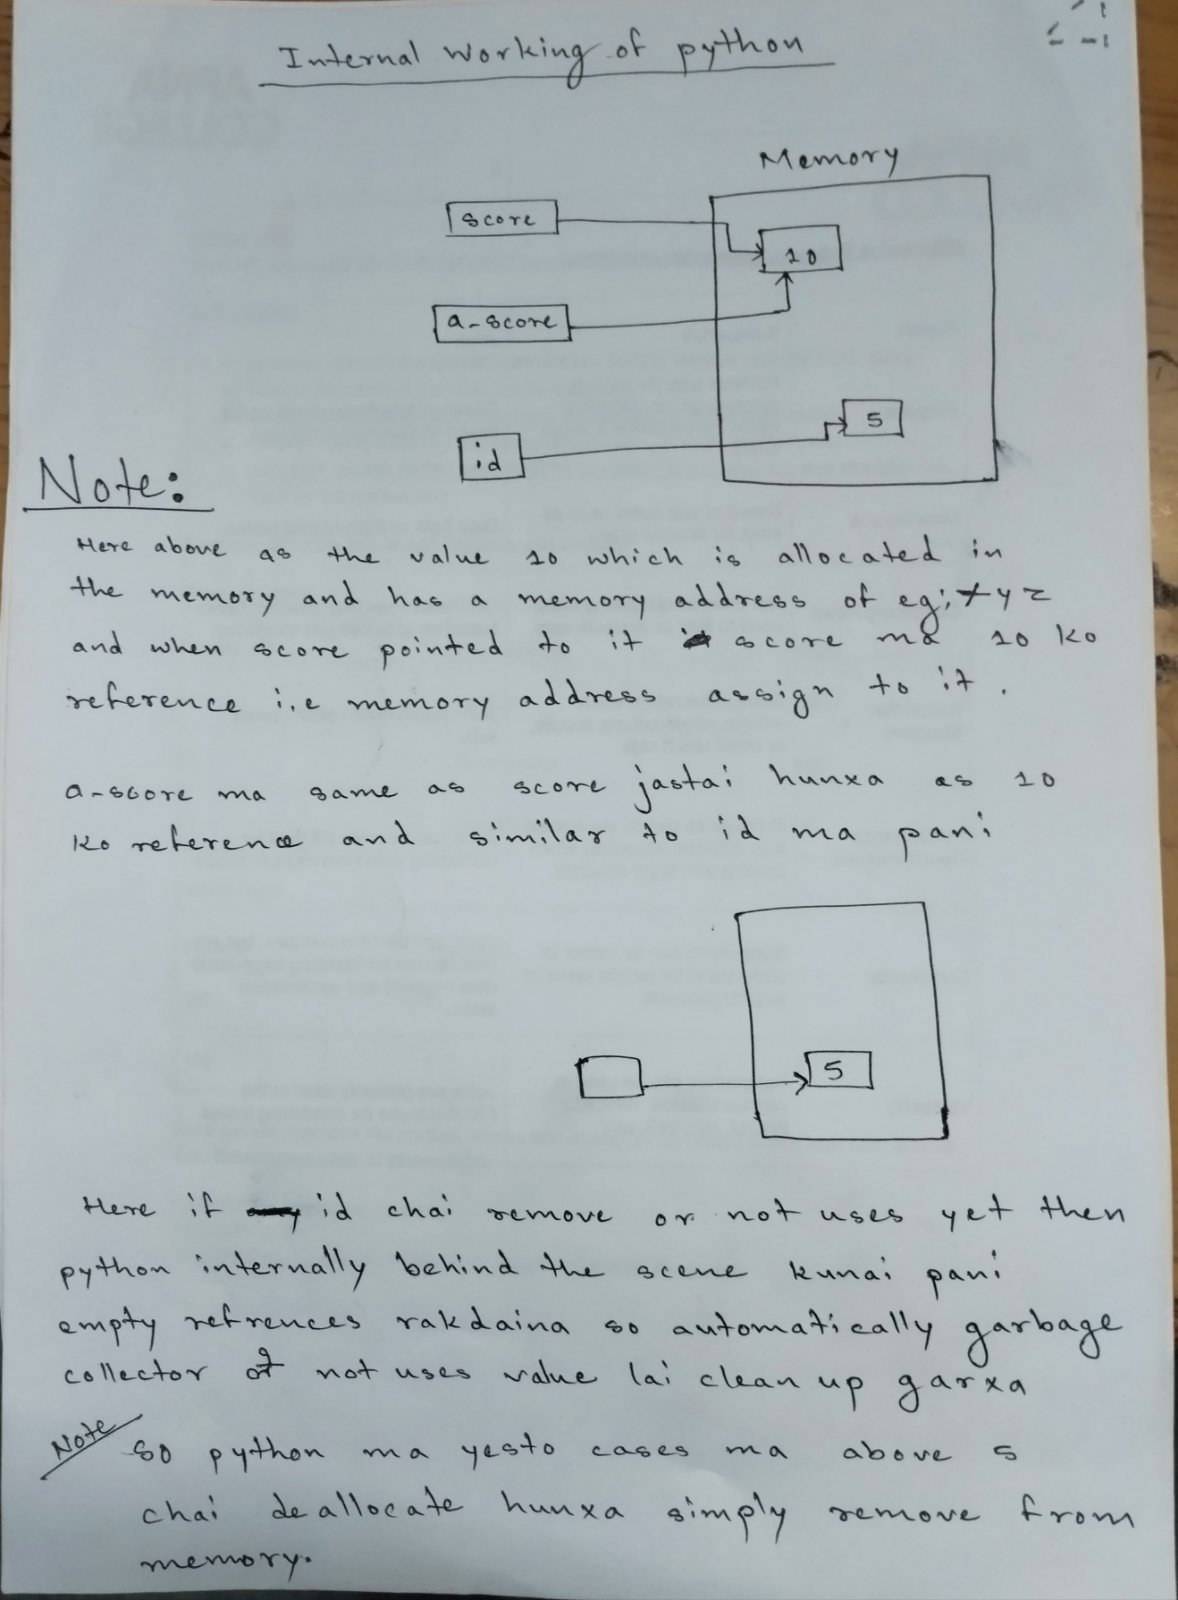 Internal working of python
Memory
score
10
a-score
5
id
Note:
Here above as the value 10 which is allocated in
the memory and has a memory address of eg; xyz
and when score pointed to it score ma 10 ko
reference i.e memory address assign to it.
a-score ma same as score jastai hunxa as 10
ko reference and similar to id ma pani
5
Here if id chai remove or not uses yet then
python internally behind the scene kunai pani
empty refrences rakdaina so automatically garbage
collector of not uses value lai clean up garxa
Note
so python ma yesto cases ma above 5
chai deallocate hunxa simply remove from
memory.